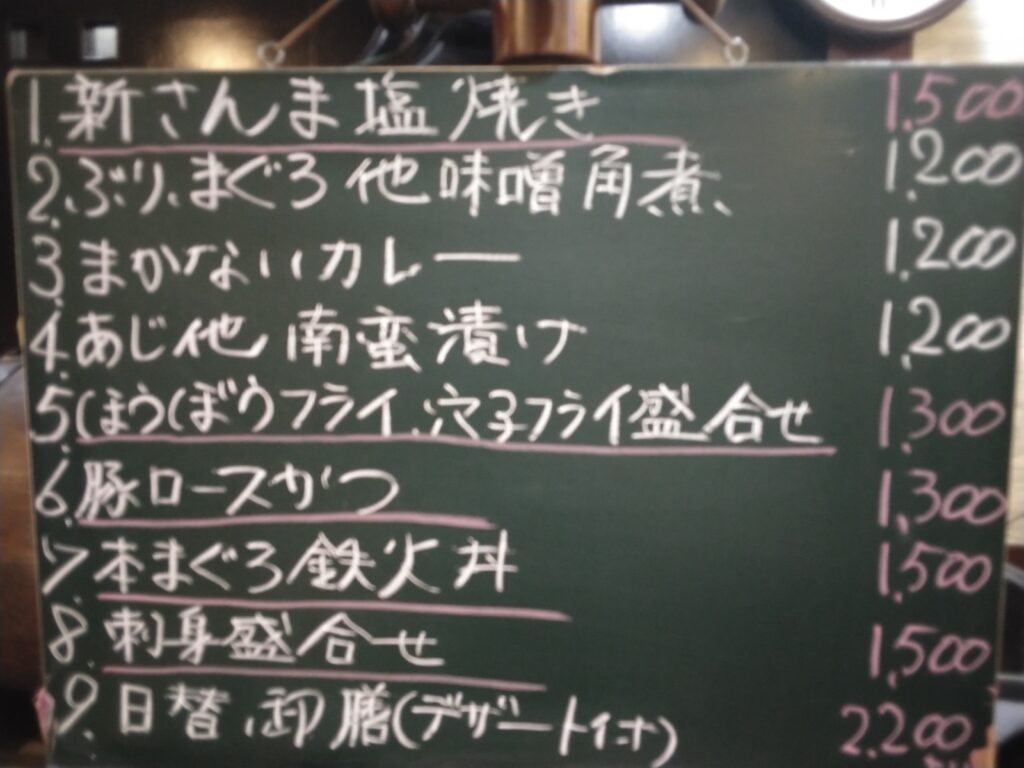 1.新さんま塩焼き 1.500
2.ぶり、まぐろ他味噌角煮 1.200
3.まかないカレー 1.200
4.あじ他南蛮漬け 1.200
5.ほうぼうフライ、穴子フライ盛合せ 1.300
6.豚ロースかつ 1.300
7.本まぐろ鉄火丼 1.500
8.刺身盛合せ 1.500
9.日替御膳(デザート付) 2.200